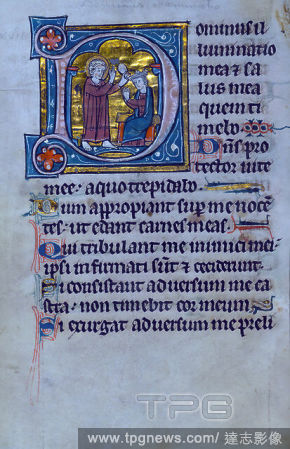 ominus il
luminatio
mea & sa
lus mea
quem ti
mebo
Dñs pro
tector vite
mee · a quo trepidabo
Dum appropiant sup me nocen
tes · ut edant carnes meas
Qui tribulant me inimici mei ·
ipsi infirmati sūt & ceciderunt
Si consistant adversum me ca
stra · non timebit cor meum
Si exurgat adversum me preli
TPG
www.tpgnews.com/ 達志影像